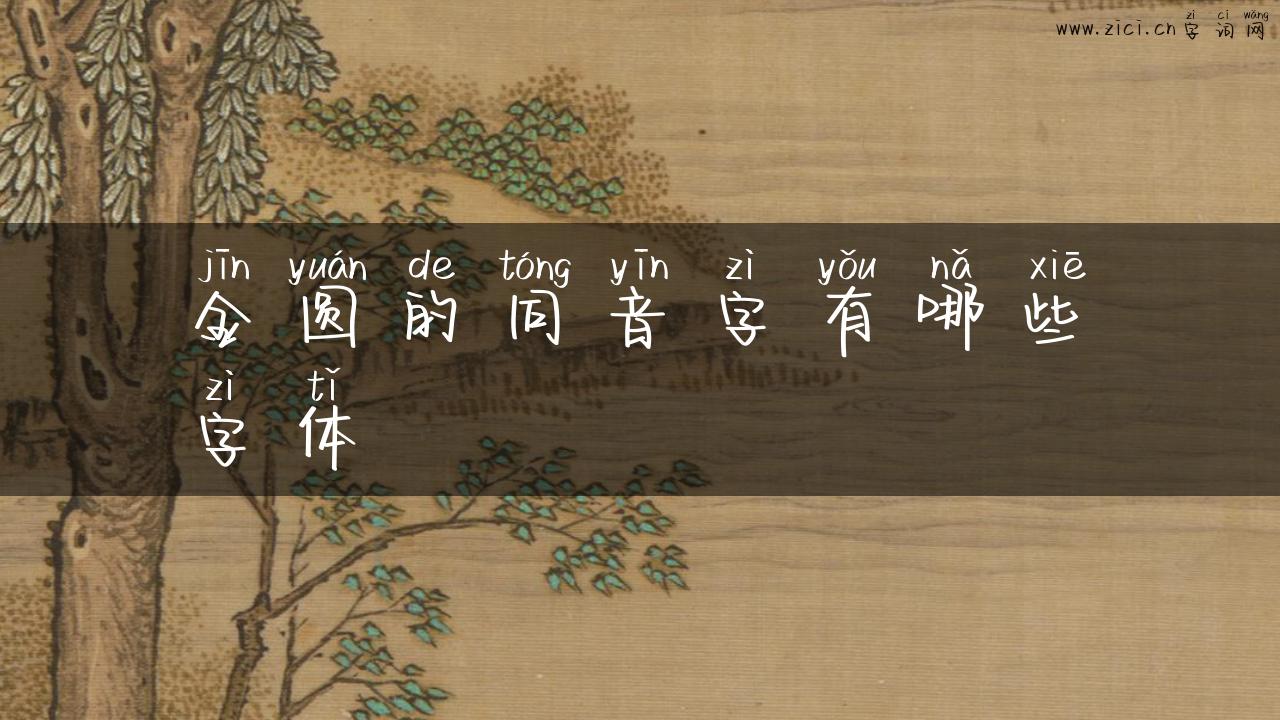 zì cí wǎng
www.zici.cn 字词网
jīn yuán de tóng yīn zì yǒu nǎ xiē
金圆的同音字有哪些
zì tǐ
字体